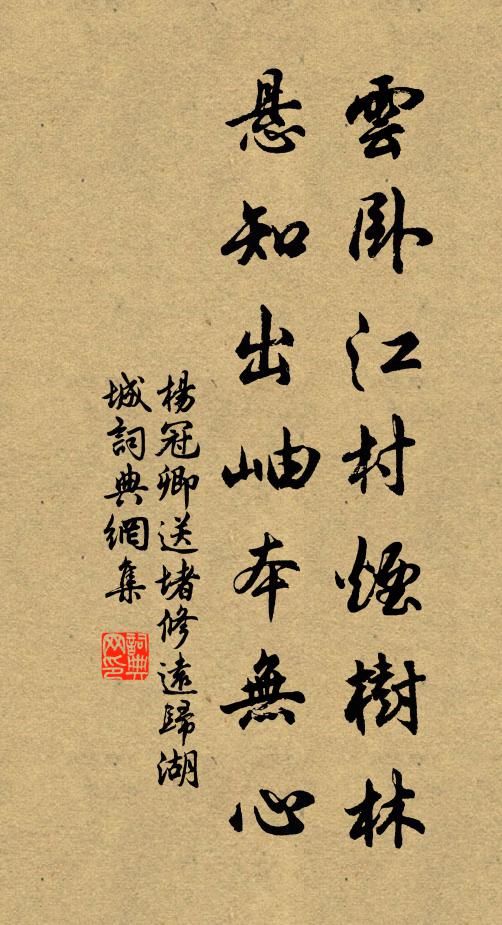 雲卧江村煙樹林
悬知出岫本無心
楊冠卿送堵修遠歸湖
城詞典網集
詞典网印